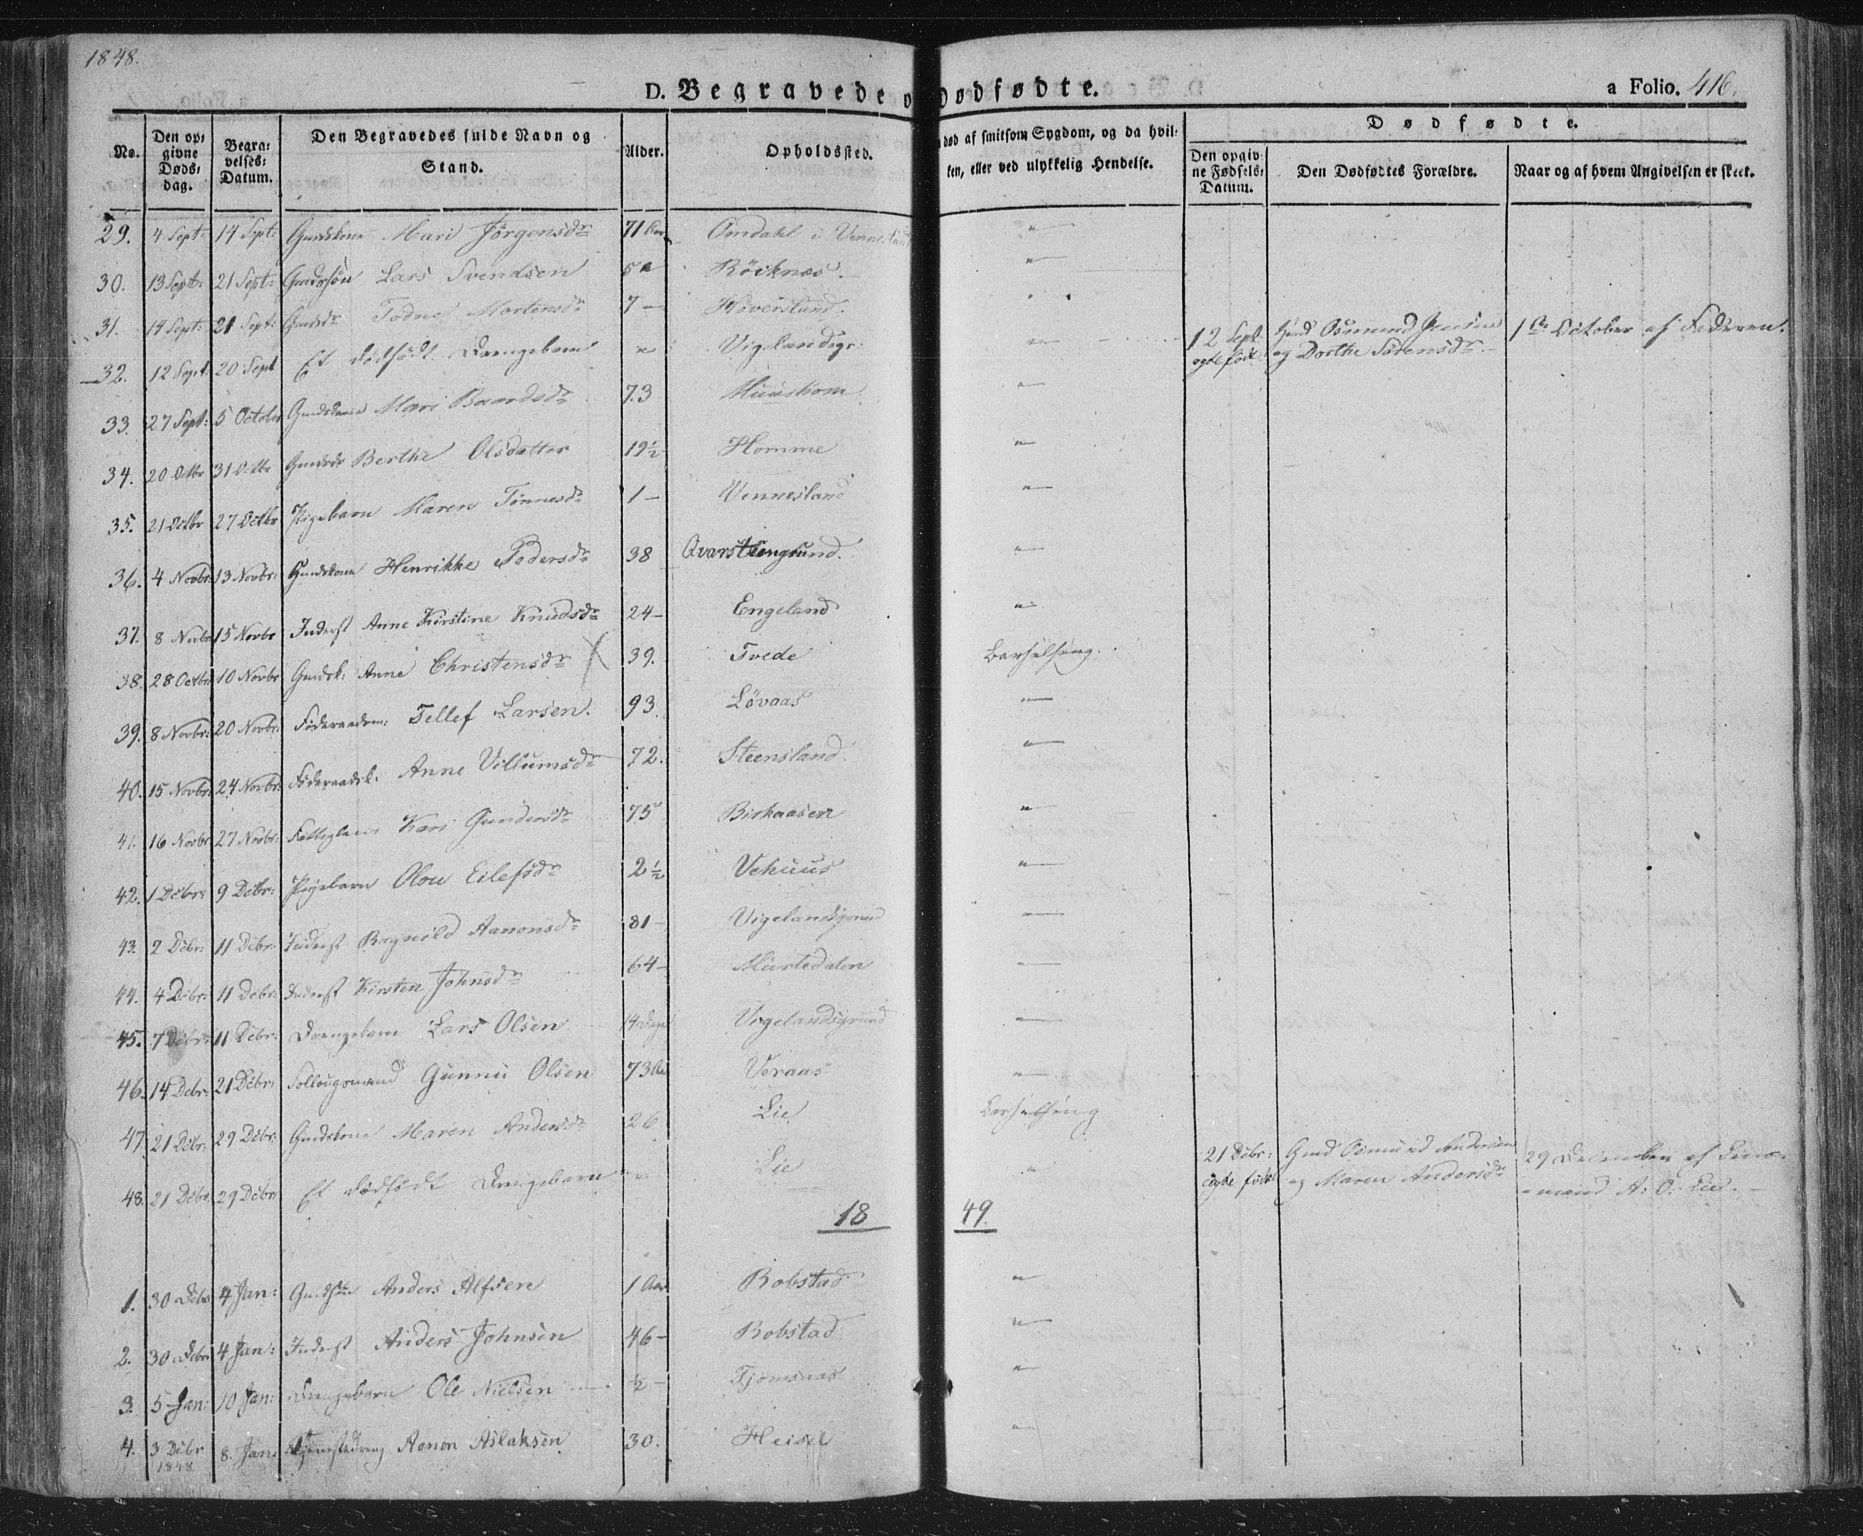 1848.
D. Begravede o Dødfødte. a Folio. 416.
No. Den opgivne Dødsdag. Begravelses-Datum. Den Begravedes fulde Navn og Stand. Alder. Opholdssted. død af smitsom Sygdom, og da hvilken, eller ved ulykkelig Hendelse. Dødfødte.
Den opgivne Fødsels-Datum. Den Dødfødtes Forældre. Naar og af hvem Angivelsen er skeet.
29. 4 Sept: 14 Sept: Gmdskone Mari Jörgensdr 71 Aar Omdahl i Vennesland "
30. 13 Sept: 21 Sept: Gmdssön Lars Svendsen 5 Röiknes. "
31. 14 Sept: 21 Sept: Gmdsdr Todne Mortensdr 7 – Höversland. "
32. 12 Sept. 20 Sept Et dödfödt Drengebarn " Vigelandsgr: " 12 Sept. ægte född Gmd Osmund Jensen og Dorthe Sörensdr. 1ste October af Faderen.
33. 27 Sept: 5 October Gmdskone Mari Baardsdr 73 "
34. 20 Octbr 31 Octbr Gmdsdr Berthe Olsdatter 19½ Homme "
35. 21 Octbr 27 Octbr Pigebarn Maren Tönnesdr 1 – Vennesland "
36. 4 Novbr: 13 Novbr: Gmdskone Henrikke Pedersdr 38 Qvarsteengrund. "
37. 8 Novbr 15 Novbr Inderst Anne Kirstine Knudsdr 24 – Engeland "
38. 28 Octbr 10 Novbr Gmdsk: Anne Christensdr 39. Tvede Barselseng.
39. 8 Novbr: 20 Novbr: Föderaadsm: Tellef Larsen. 93. Lövaas "
40. 15 Novbr: 24 Novbr: Föderaadsk: Anne Villumsdr 72. Steensland. "
41. 16 Novbr 27 Novbr: Fattiglem Kari Gundersdr 75 Birkaasen "
42. 1 Debr: 9 Debr: Pigebarn Olou Eilefsdr 2½ Vehuus "
43. 2 Debr: 11 Debr: Inderst Ragnild Aanonsdr 81 – Vigelandsgrund "
44. 4 Debr: 11 Debr: Inderst Kirsten Johnsdr 64 – "
45. 7 Debr: 11 Debr: Drengebarn Lars Olsen 14 Dage Vigelandsgrund "
46. 14 Debr: 21 Debr: Gunnu Olsen 73 Aar Veraas "
47. 21 Debr: 29 Debr: Gmdskone Maren Andersdr 26 Lie Barselseng
48. 21 Debr. 29 Debr: Et dödfödt Drengebarn " Lie " 21 Debr: ægte född Gmd Osmund Andersen og Maren Andersdr 29 December af mand A. O. Lie.
18 49.
1. 30 Debr 4 Jan: Gmdssön Anders Alfsen 1 Aar Robstad "
2. 30 Debr 4 Jan: Inderst Anders Johnsen 46 – Robstad "
3. 5 Jan: 10 Jan: Drengebarn Ole Nielsen ½ – Fjömsaas "
4. 3 Debr 1848 8. Jan: Tjenestedreng Aanon Aslaksen 30. Heisel "